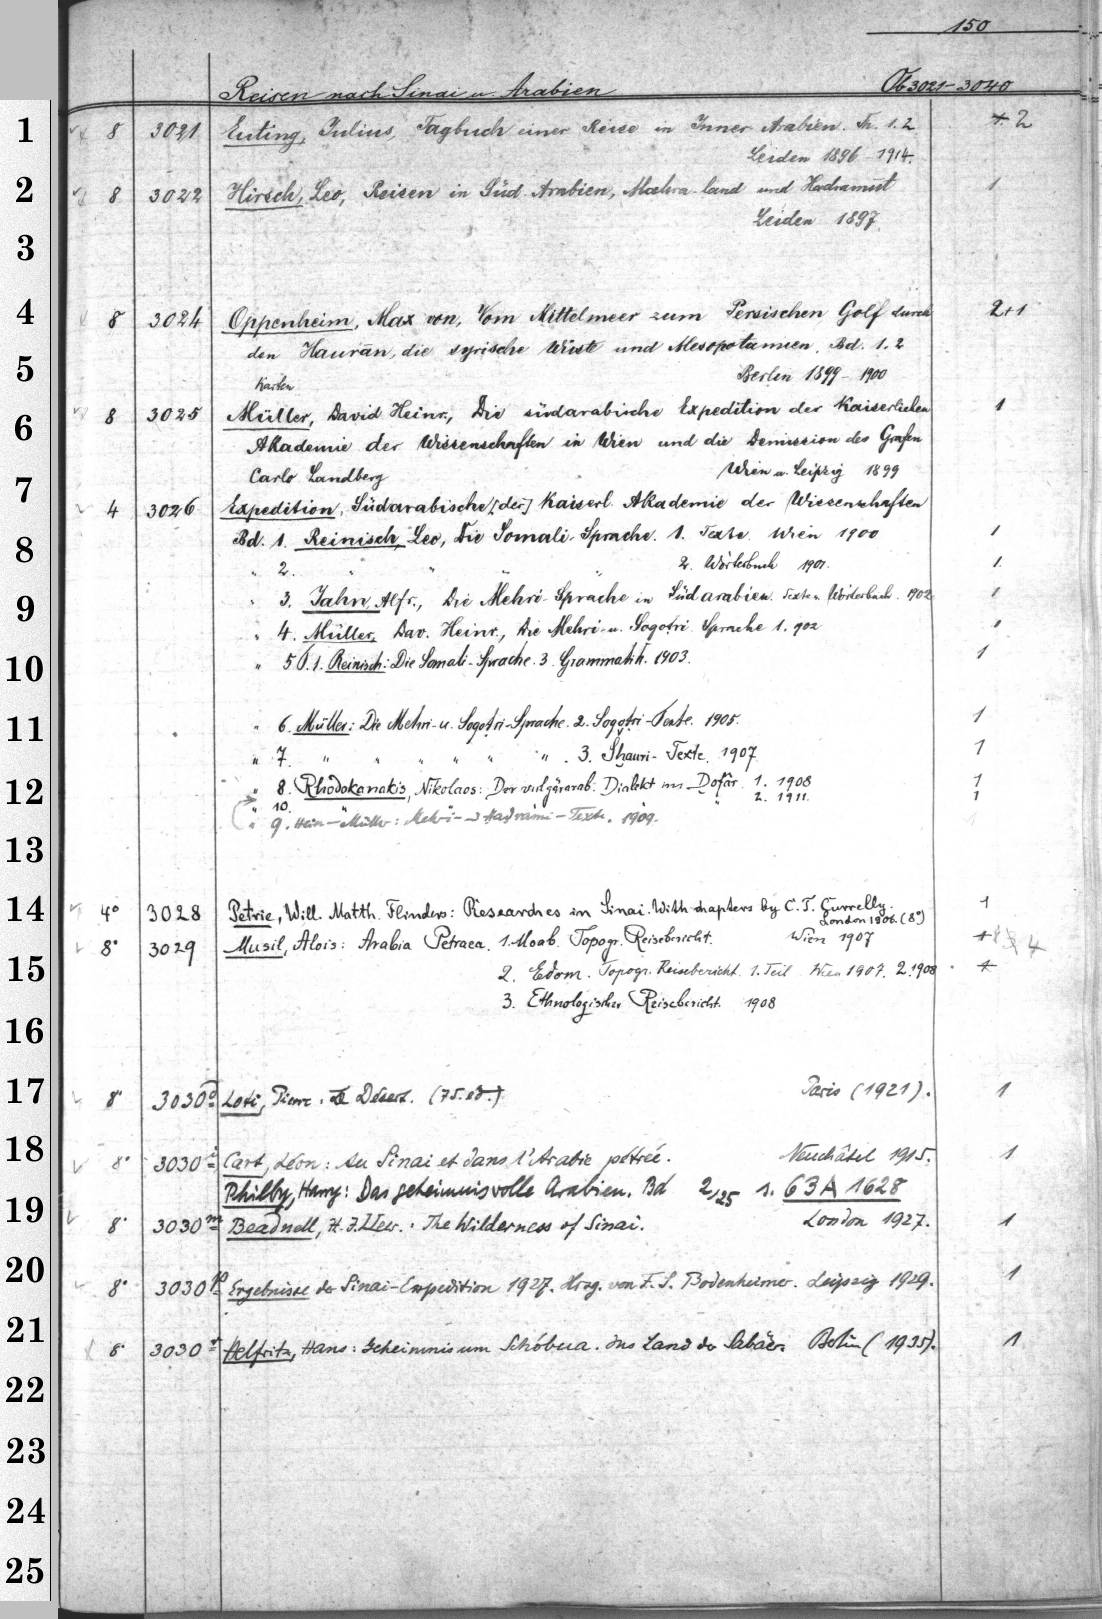 150
Reisen nach Sinai u. Arabien Ob 3021-3040
1 8 3021 Euting, Julius, Tagbuch einer Reise in Inner Arabien. Th. 1. 2 2
Leiden 1896 1914.
2 8 3022 Hirsch, Leo, Reisen in Süd-Arabien, Mahra-land und Hadramut 1
Leiden 1897.
3
4 8 3024 Oppenheim, Max von, Vom Mittelmeer zum Persischen Golf durch 2+1
den Haurān, die syrische Wüste und Mesopotamien. Bd. 1. 2
5 Karten Berlin 1899 - 1900
6 8 3025 Müller, David Heinr., Die südarabische Expedition der Kaiserlichen 1
Akademie der Wissenschaften in Wien und die Demission des Grafen
Carlo Landberg Wien u. Leipzig 1899
7 4 3026 Expedition, Südarabische, [der] Kaiserl. Akademie der Wissenschaften
8 Bd. 1. Reinisch, Leo, Die Somali-Sprache. 1. Texte. Wien 1900 1
" 2. " " " " 2. Wörterbuch 1901. 1.
9 " 3. Jahn, Alfr., Die Mehri-Sprache in Südarabien. Texte u. Wörterbuch. 1902 1
" 4. Müller, Dav. Heinr., Die Mehri- u. Soqoṭri Sprache 1. 902 1
10 " 5 T. 1. Reinisch: Die Somali-Sprache. 3. Grammatik. 1903. 1
11 " 6. Müller: Die Mehri- u. Soqoṭri-Sprache. 2. Soqoṭri-Texte. 1905. 1
" 7. " " " " " " . 3. Šḫauri-Texte. 1907 1
12 " 8. Rhodokanakis, Nikolaos: Der vulgärarab. Dialekt im Ḍofâr. 1. 1908 1
" 10. " " 2. 1911. 1
" 9. Hein-Müller: Mehri- u Ḥaḍrami-Texte. 1909.
13
14 4° 3028 Petrie, Will. Matth. Flinders: Researches in Sinai. With chapters by C. T. Currelly. 1
London 1906. (8°)
8° 3029 Musil, Alois: Arabia Petraea. 1. Moab. Topogr. Reisebericht. Wien 1907 4
15 2. Edom. Topogr. Reisebericht. 1. Teil Wien 1907. 2. 1908
3. Ethnologischer Reisebericht. 1908
16
17 8° 3030 Loti, Pierre. Le Désert. (75. éd.) Paris (1921). 1
18 8° 3030 i Cart, Léon: Au Sinaï et dans l'Arabie pétrée. Neuchâtel 1915. 1
Philby, Harry: Das geheimnisvolle Arabien. Bd 2/25 1. 63 A 1628
19 8° 3030 m Beadnell, H. J. Llew.: The Wilderness of Sinai. London 1927. 1
20 8° 3030 p Ergebnisse der Sinai-Expedition 1927. Hrsg. von F. S. Bodenheimer. Leipzig 1929. 1
21 8° 3030 r Helfritz, Hans: Geheimnis um Schóbua. Ins Land der Sabäer. Berlin (1935). 1
22
23
24
25